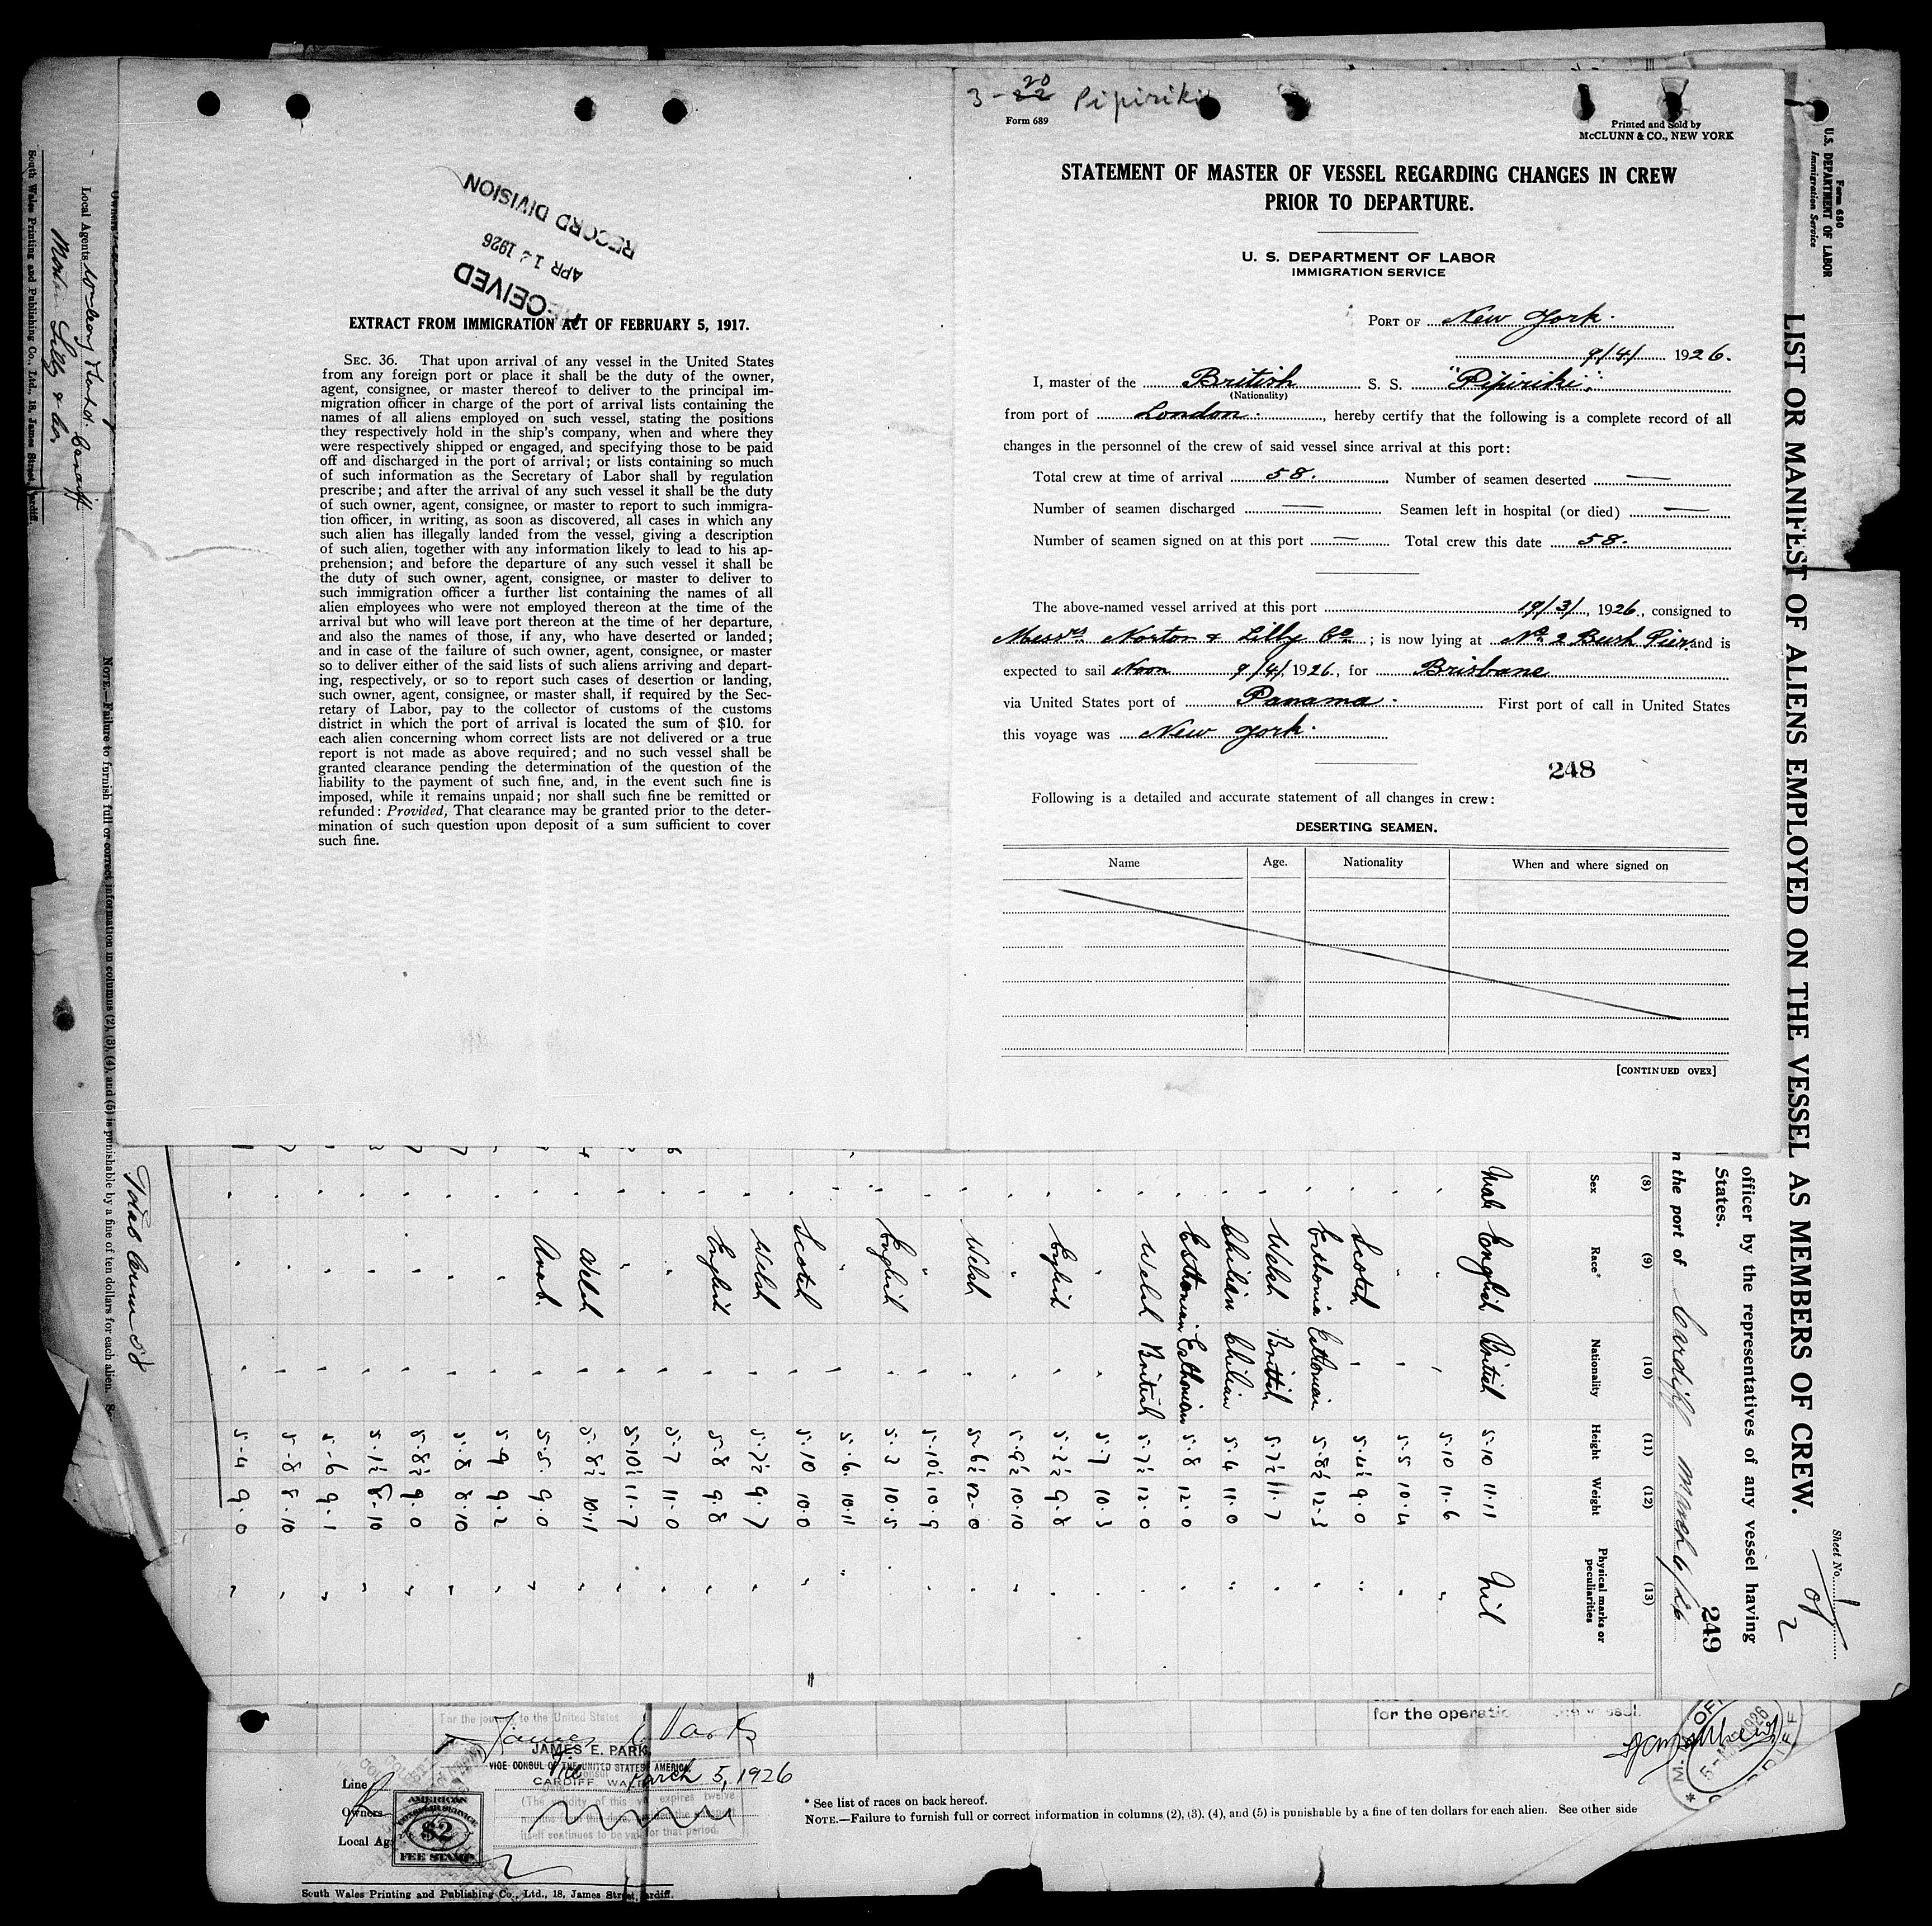 3-22 20 Pipiriki
Form 689
Printed and Sold by
McCLUNN & CO., NEW YORK
STATEMENT OF MASTER OF VESSEL REGARDING CHANGES IN CREW
PRIOR TO DEPARTURE.
U. S. DEPARTMENT OF LABOR
IMMIGRATION SERVICE
PORT OF New York.
9/4/ 1926.
I, master of the British S. S. "Pipiriki"
(Nationality)
from port of London., hereby certify that the following is a complete record of all
changes in the personnel of the crew of said vessel since arrival at this port:
Total crew at time of arrival 58. Number of seamen deserted —
Number of seamen discharged — Seamen left in hospital (or died) —
Number of seamen signed on at this port — Total crew this date 58.
The above-named vessel arrived at this port 19/3/, 1926., consigned to
Messrs Norton & Lilly Co ; is now lying at No 2 Bush Pier and is
expected to sail Noon 9/4/ 1926., for Brisbane
via United States port of Panama. First port of call in United States
this voyage was New York.
248
Following is a detailed and accurate statement of all changes in crew:
DESERTING SEAMEN.
Name Age. Nationality When and where signed on
[CONTINUED OVER]
RECEIVED
APR 1 1926
RECORD DIVISION
EXTRACT FROM IMMIGRATION ACT OF FEBRUARY 5, 1917.
SEC. 36. That upon arrival of any vessel in the United States
from any foreign port or place it shall be the duty of the owner,
agent, consignee, or master thereof to deliver to the principal im-
migration officer in charge of the port of arrival lists containing the
names of all aliens employed on such vessel, stating the positions
they respectively hold in the ship's company, when and where they
were respectively shipped or engaged, and specifying those to be paid
off and discharged in the port of arrival; or lists containing so much
of such information as the Secretary of Labor shall by regulation
prescribe; and after the arrival of any such vessel it shall be the duty
of such owner, agent, consignee, or master to report to such immigra-
tion officer, in writing, as soon as discovered, all cases in which any
such alien has illegally landed from the vessel, giving a description
of such alien, together with any information likely to lead to his ap-
prehension; and before the departure of any such vessel it shall be
the duty of such owner, agent, consignee, or master to deliver to
such immigration officer a further list containing the names of all
alien employees who were not employed thereon at the time of the
arrival but who will leave port thereon at the time of her departure,
and also the names of those, if any, who have deserted or landed;
and in case of the failure of such owner, agent, consignee, or master
so to deliver either of the said lists of such aliens arriving and depart-
ing, respectively, or so to report such cases of desertion or landing,
such owner, agent, consignee, or master shall, if required by the Sec-
retary of Labor, pay to the collector of customs of the customs
district in which the port of arrival is located the sum of $10. for
each alien concerning whom correct lists are not delivered or a true
report is not made as above required; and no such vessel shall be
granted clearance pending the determination of the question of the
liability to the payment of such fine, and, in the event such fine is
imposed, while it remains unpaid; nor shall such fine be remitted or
refunded: Provided, That clearance may be granted prior to the deter-
mination of such question upon deposit of a sum sufficient to cover
such fine.
Form 680
U.S. DEPARTMENT OF LABOR
Immigration Service
LIST OR MANIFEST OF ALIENS EMPLOYED ON THE VESSEL AS MEMBERS OF CREW.
Sheet No. 1
of 2
officer by the representatives of any vessel having
States.
249
n the port of Cardiff March 6/26
(8) (9) (10) (11) (12) (13)
Sex Race* Nationality Height Weight Physical marks or peculiarities
Male English British 5-10 11-11 Nil
" " " 5-10 11-6 "
" " " 5-5 10-4 "
" Scotch " 5-4½ 9-0 "
" Esthonia Esthonian 5-8½ 12-3 "
" Welsh British 5-7½ 11-7 "
" Chilian Chilian 5-4 11-0 "
" Esthonian Esthonian 5-8 12-0 "
" Welsh British 5-7½ 12-0 "
" " " 5-7 10-3 "
" English " 5-2½ 9-8 "
" " " 5-9½ 10-10 "
" Welsh " 5-6½ 12-0 "
" " " 5-10½ 10-9 "
" English " 5-3 10-5 "
" " " 5-6 10-11 "
" Scotch " 5-10 10-0 "
" Welsh " 5-7½ 9-7 "
" English " 5-8 9-8 "
" " " 5-7 11-0 "
" " " 5-10½ 11-7 "
" Welsh " 5-8½ 10-11 "
" Arab. " 5-5 9-0 "
" " " 5-9 9-2 "
" " " 5-8 8-10 "
" " " 5-8½ 9-0 "
" " " 5-1½ 8-10 "
" " " 5-6 9-1 "
" " " 5-8 8-10 "
" " " 5-4 9-0 "
Total Crew 58
NOTE.—Failure to furnish full or correct information in columns (2), (3), (4), and (5) is punishable by a fine of ten dollars for each alien. Se
Owners
Local Agents
Cardiff
Norton Lilly & Co.
South Wales Printing and Publishing Co., Ltd., 18, James Street, Cardiff.
for the operation vessel.
For the journey to the United States
James E Park
JAMES E. PARK,
VICE CONSUL OF THE UNITED STATES OF AMERICA.
CARDIFF WALES
March 5, 1926
(The validity of this expires twelve
itself continues to be valid for that period.
Line
Owners
Local Ag
AMERICAN
CONSULAR SERVICE
$2
FEE STAMP
* See list of races on back hereof.
NOTE.—Failure to furnish full or correct information in columns (2), (3), (4), and (5) is punishable by a fine of ten dollars for each alien. See other side
South Wales Printing and Publishing Co., Ltd., 18, James Street, ardiff.